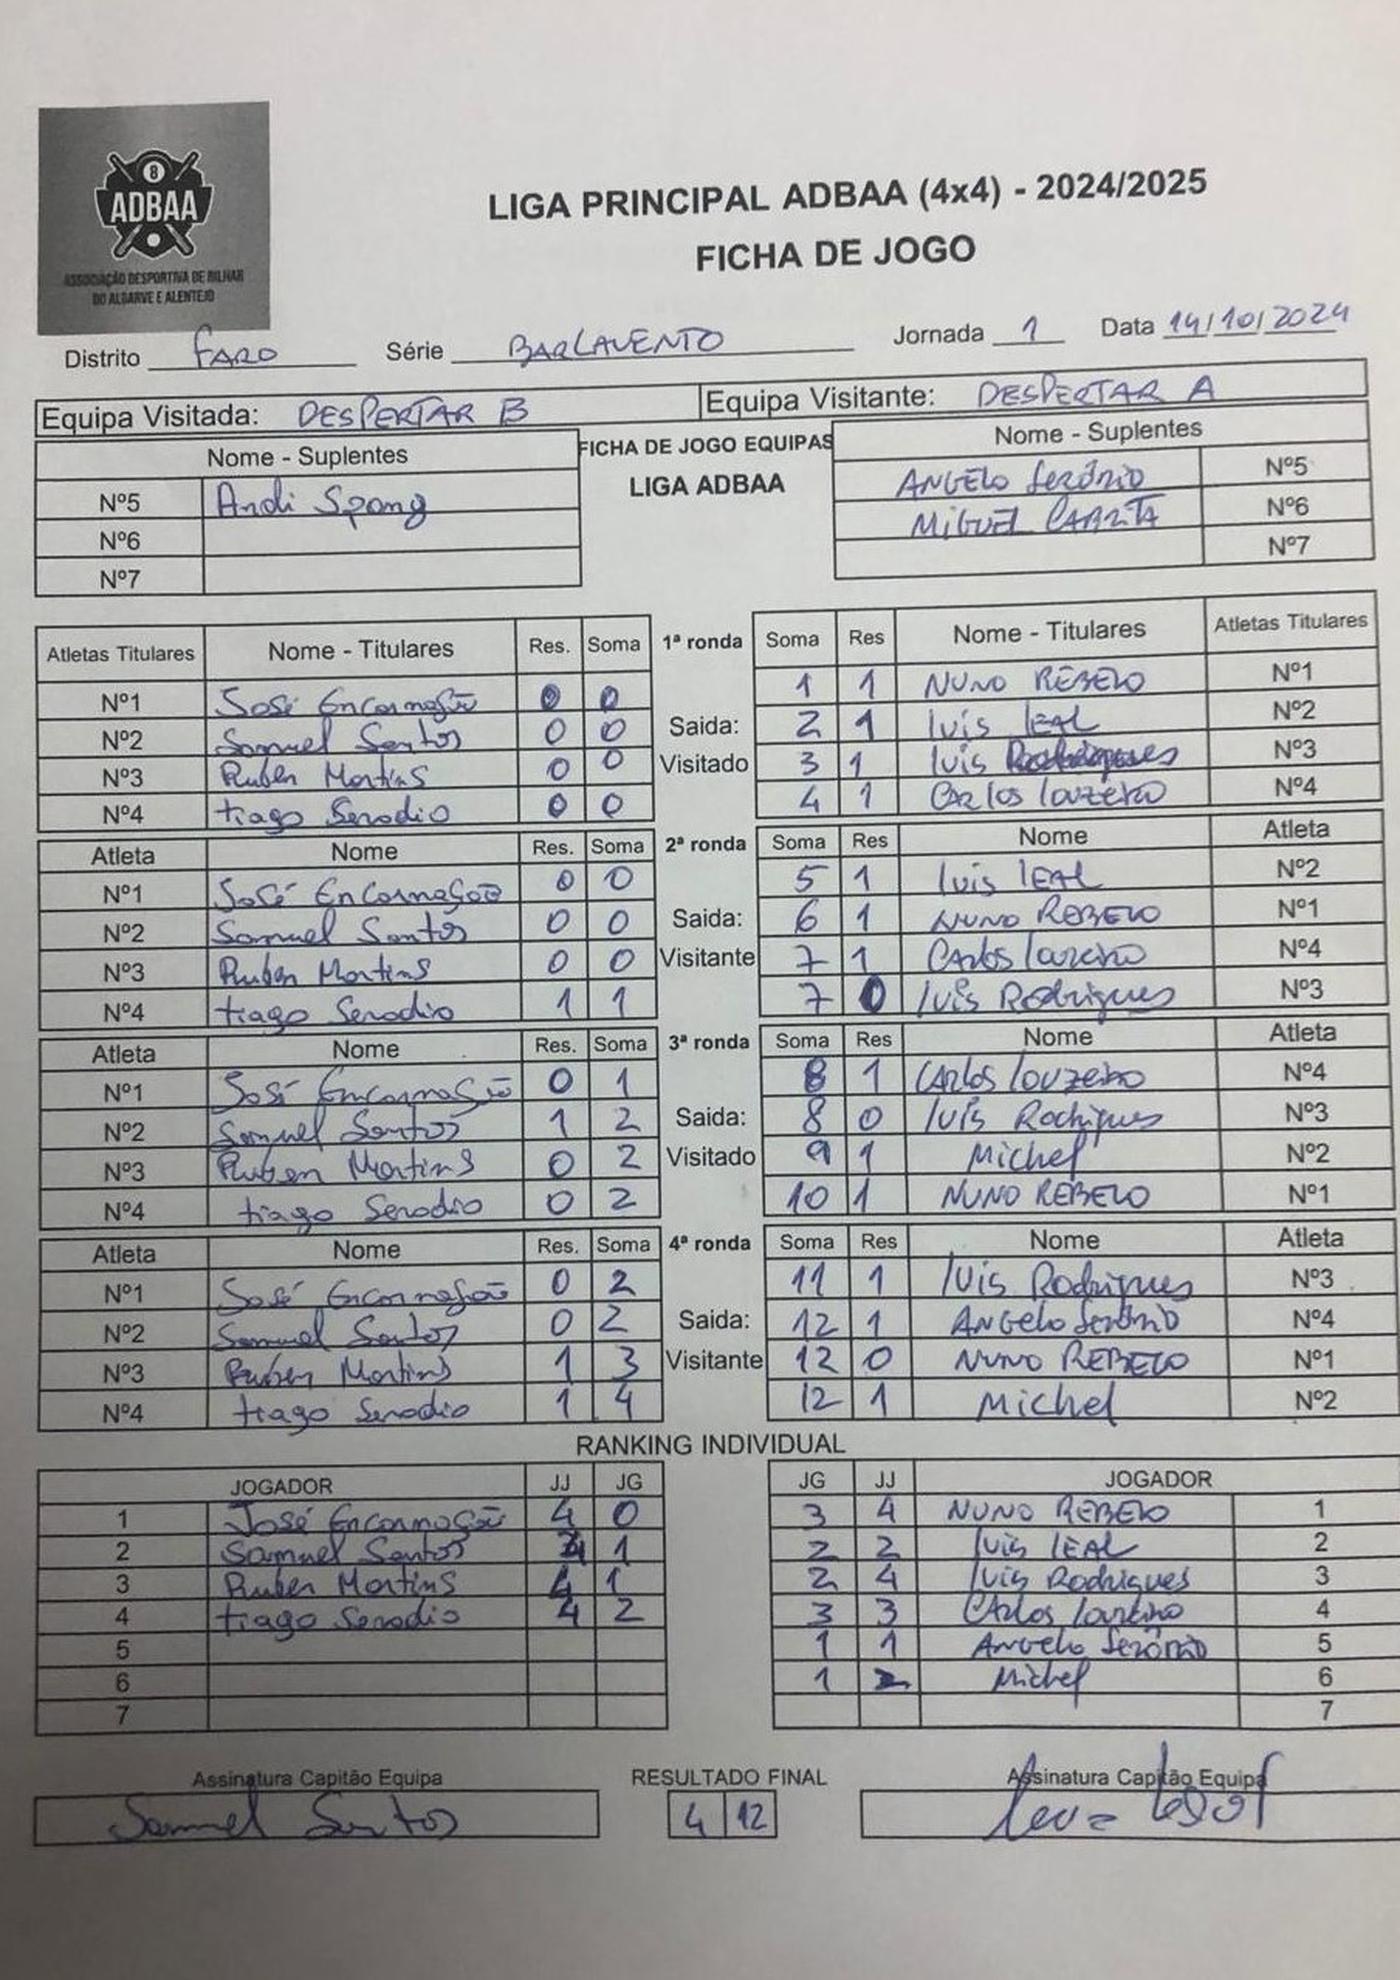 8
ADBAA
ASSOCIAÇÃO DESPORTIVA DE BILHAR
DO ALGARVE E ALENTEJO
LIGA PRINCIPAL ADBAA (4x4) - 2024/2025
FICHA DE JOGO
Distrito FARO Série BARLAVENTO Jornada 1 Data 14/10/2024
Equipa Visitada: DESPERTAR B Equipa Visitante: DESPERTAR A
Nome - Suplentes FICHA DE JOGO EQUIPAS Nome - Suplentes
LIGA ADBAA
Nº5 Andi Spong ANGELO Serôdio Nº5
Nº6 MIGUEL CABRITA Nº6
Nº7 Nº7
Atletas Titulares Nome - Titulares Res. Soma 1ª ronda Soma Res Nome - Titulares Atletas Titulares
Nº1 José Encarnação 0 0 1 1 NUNO REBELO Nº1
Nº2 Samuel Santos 0 0 Saida: 2 1 luís lEAL Nº2
Nº3 Ruben Martins 0 0 Visitado 3 1 luís Rodrigues Nº3
Nº4 tiago Serodio 0 0 4 1 CARlos louzeiro Nº4
Atleta Nome Res. Soma 2ª ronda Soma Res Nome Atleta
Nº1 José Encarnação 0 0 5 1 luís lEAL Nº2
Nº2 Samuel Santos 0 0 Saida: 6 1 NUNO REBELO Nº1
Nº3 Ruben Martins 0 0 Visitante 7 1 CARlos louzeiro Nº4
Nº4 tiago Serodio 1 1 7 0 luís Rodrigues Nº3
Atleta Nome Res. Soma 3ª ronda Soma Res Nome Atleta
Nº1 José Encarnação 0 1 8 1 CARlos louzeiro Nº4
Nº2 Samuel Santos 1 2 Saida: 8 0 luís Rodrigues Nº3
Nº3 Ruben Martins 0 2 Visitado 9 1 Michel Nº2
Nº4 tiago Serodio 0 2 10 1 NUNO REBELO Nº1
Atleta Nome Res. Soma 4ª ronda Soma Res Nome Atleta
Nº1 José Encarnação 0 2 11 1 luís Rodrigues Nº3
Nº2 Samuel Santos 0 2 Saida: 12 1 ANGElo Serôdio Nº4
Nº3 Ruben Martins 1 3 Visitante 12 0 NUNO REBELO Nº1
Nº4 tiago Serodio 1 4 12 1 Michel Nº2
RANKING INDIVIDUAL
JOGADOR JJ JG JG JJ JOGADOR
1 José Encarnação 4 0 3 4 NUNO REBELO 1
2 Samuel Santos 4 1 2 2 luís lEAL 2
3 Ruben Martins 4 1 2 4 luís Rodrigues 3
4 tiago Serodio 4 2 3 3 CARlos louzeiro 4
5 1 1 ANGElo Serôdio 5
6 1 2 Michel 6
7 7
Assinatura Capitão Equipa RESULTADO FINAL Assinatura Capitão Equipa
Samuel Santos 4 12